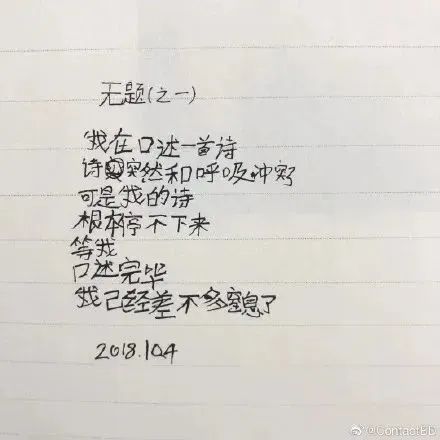 无题(之一)
我在口述一首诗
诗突然和呼吸冲突
可是我的诗
根本停不下来
等我
口述完毕
我已经差不多窒息了
2018.10.4
@ContaetED